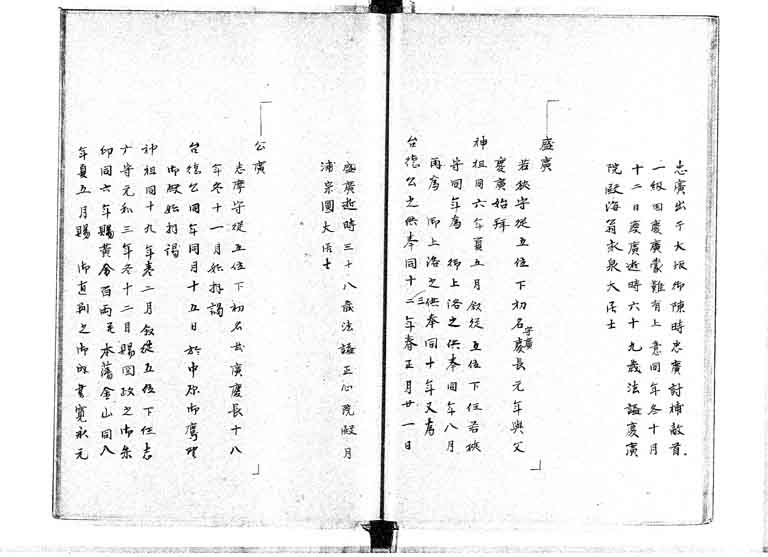 忠廣出于大坂御陳時忠廣討捕敵首
一級因慶廣蒙難有上意同年冬十月
十二日慶廣逝時六十九歳法諡慶廣
院殿海翁永泉大居士
盛廣
若狹守從五位下初名守廣慶長元年與父
慶廣始拜
神祖同六年夏五月敘從五位下任若狹
守同年爲御上洛之供奉同年八月
再爲御上洛之供奉同十年又爲
台德公之供奉同十二三年春正月廿一日
盛廣逝時三十八歳法諡正心院殿月
浦宗圓大居士
公廣
志摩守從五位下初名武廣慶長十八
年冬十一月始拜謁
台德公同年同月十五日於中原御鷹野
御殿始拜謁
神祖同十九年春二月敘從五位下任志
广守元和三年冬十二月賜国政之御朱
印同六年賜黄金百両至本藩金山同八
年夏五月賜御直判之御書寛永元